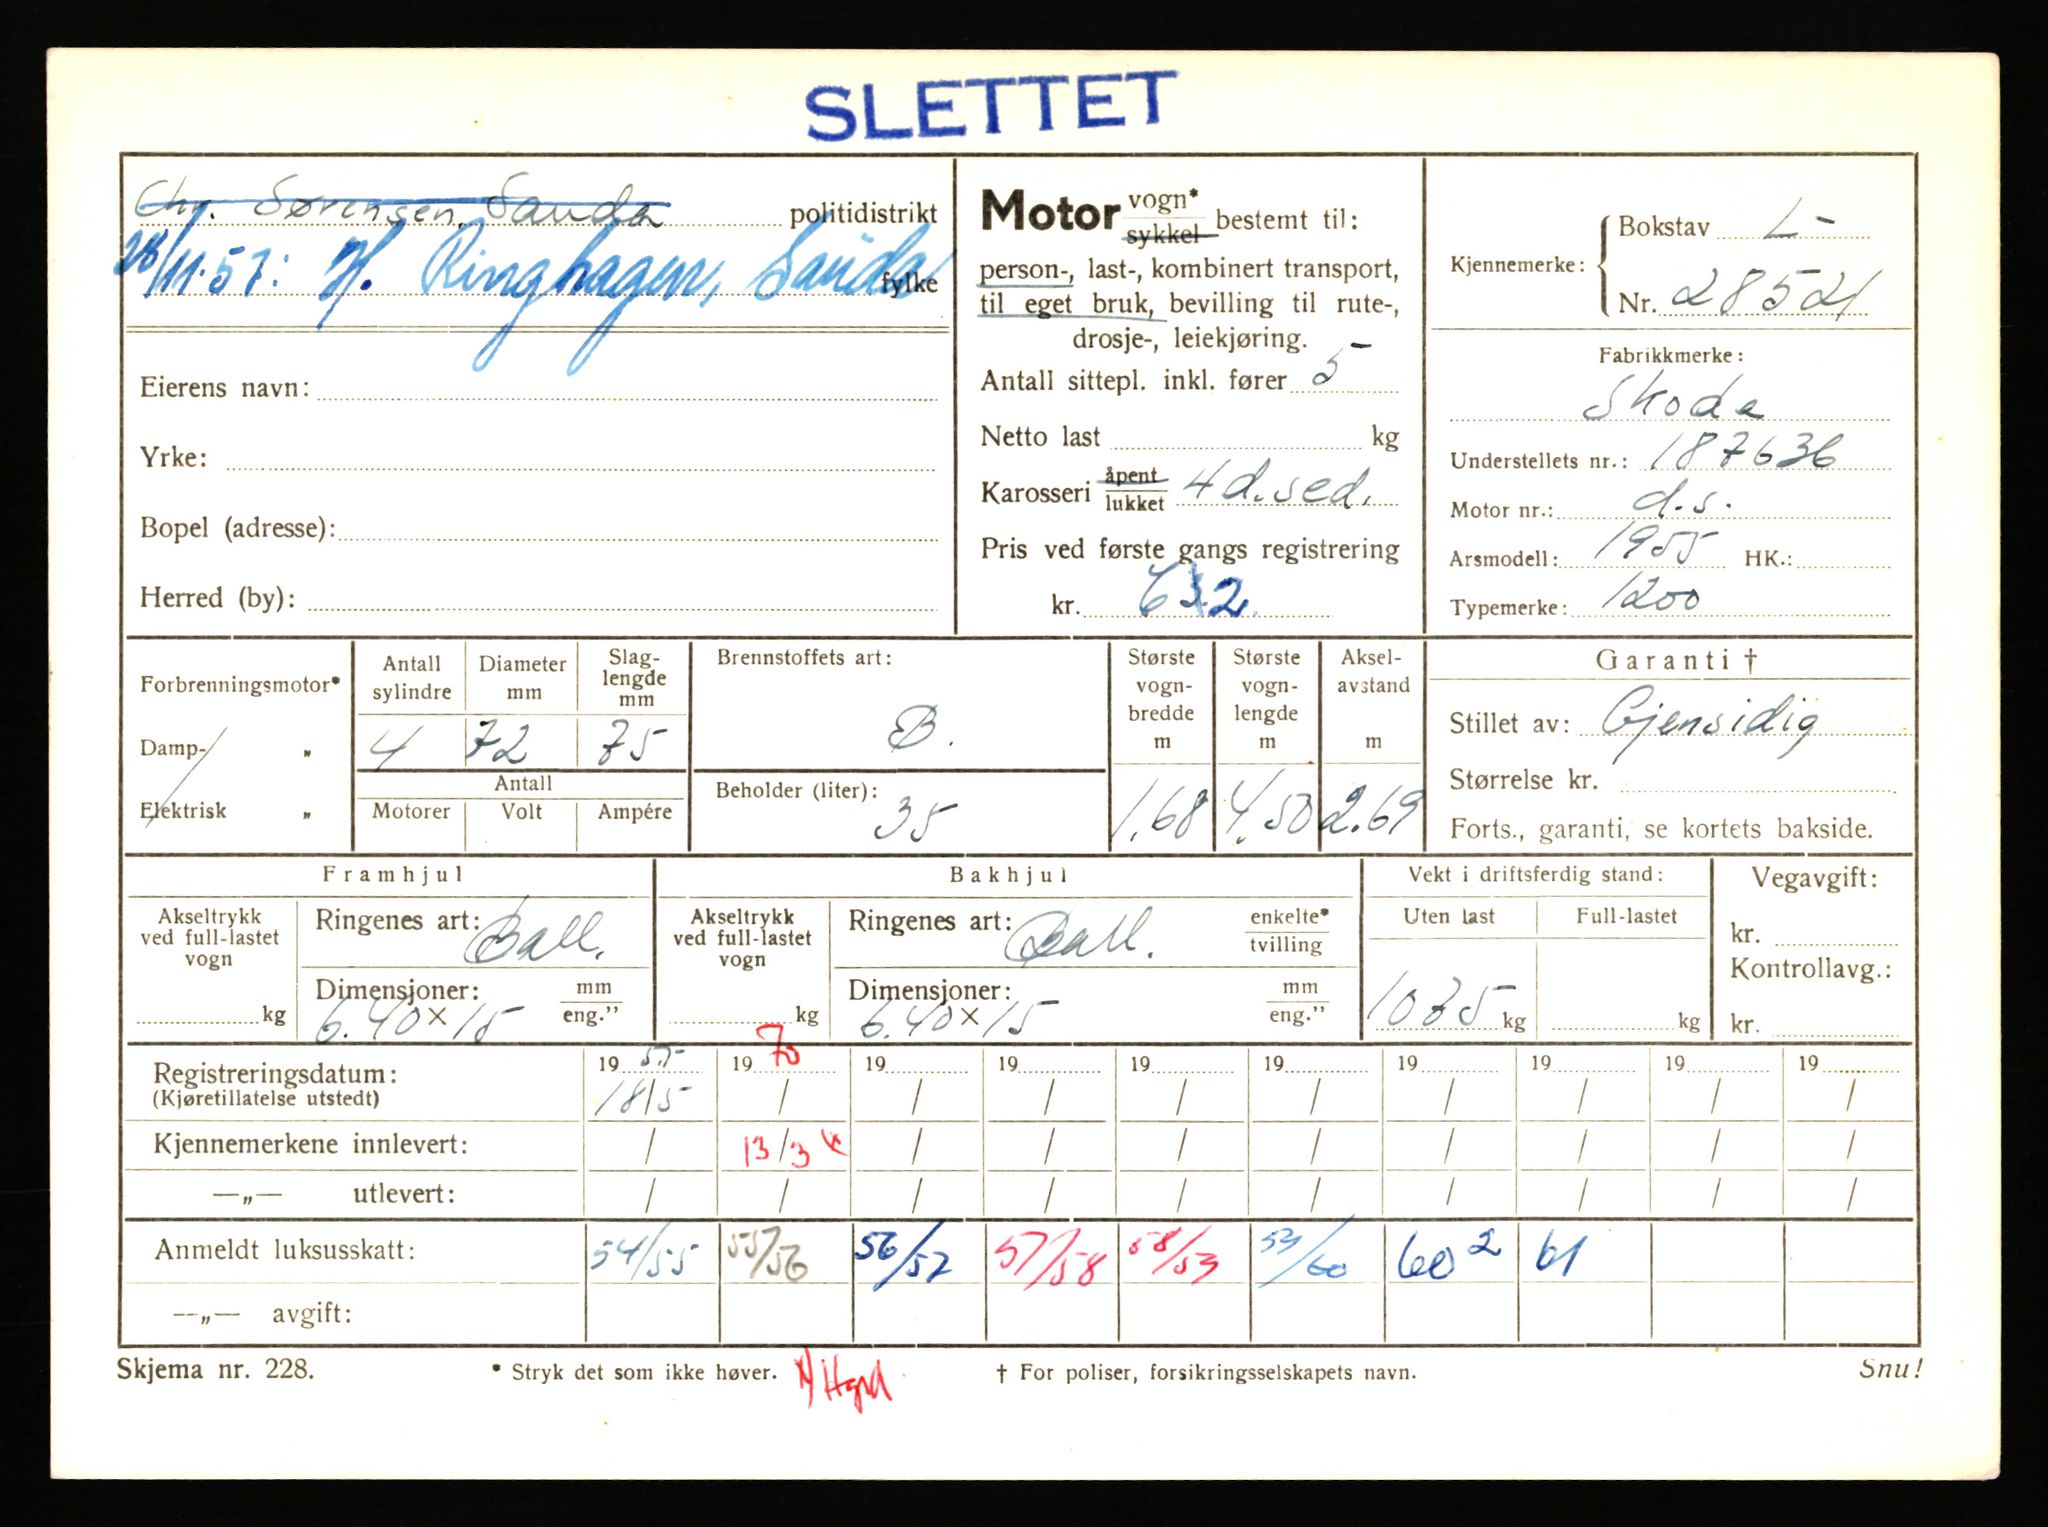 SLETTET
Chr. Sørensen, Sauda politidistrikt
28/11.57: H. Ringhagen, Sauda fylke
Eierens navn:
Yrke:
Bopel (adresse):
Herred (by):
Motor vogn* sykkel bestemt til:
person-, last-, kombinert transport,
til eget bruk, bevilling til rute-,
drosje-, leiekjøring.
Antall sittepl. inkl. fører 5
Netto last kg
Karosseri åpent lukket 4 d. sed.
Pris ved første gangs registrering
kr.
Kjennemerke: Bokstav L-
Nr. 28521
Fabrikkmerke:
Skoda
Understellets nr.: 187636
Motor nr.: d.s.
Arsmodell: 1955 HK.:
Typemerke: 1200
Forbrenningsmotor*
Damp- „
Elektrisk „
Antall sylindre Diameter mm Slag-lengde mm
4 72 75
Antall
Motorer Volt Ampére
Brennstoffets art:
B.
Beholder (liter):
35
Største vogn-bredde m
1.68
Største vogn-lengde m
4.50
Aksel-avstand m
2.69
Garanti †
Stillet av: Gjensidig
Størrelse kr.
Forts., garanti, se kortets bakside.
Framhjul
Akseltrykk ved full-lastet vogn
kg
Ringenes art: Ball.
Dimensjoner: mm eng.”
6.40 x 15
Bakhjul
Akseltrykk ved full-lastet vogn
kg
Ringenes art: Ball. enkelte* tvilling
Dimensjoner: mm eng.”
6.40 x 15
Vekt i driftsferdig stand:
Uten last Full-lastet
1035 kg kg
Vegavgift:
kr.
Kontrollavg.:
kr.
Registreringsdatum: 19 55 19 70 19 19 19 19 19 19 19 19
(Kjøretillatelse utstedt) 18/5 / / / / / / / / /
Kjennemerkene innlevert: / 13/3 / / / / / / / /
—„— utlevert: / / / / / / / / / /
Anmeldt luksusskatt: 54/55 55/56 56/57 57/58 58/59 59/60 60 2 61
—„— avgift:
Skjema nr. 228. * Stryk det som ikke høver. † For poliser, forsikringsselskapets navn. Snu!